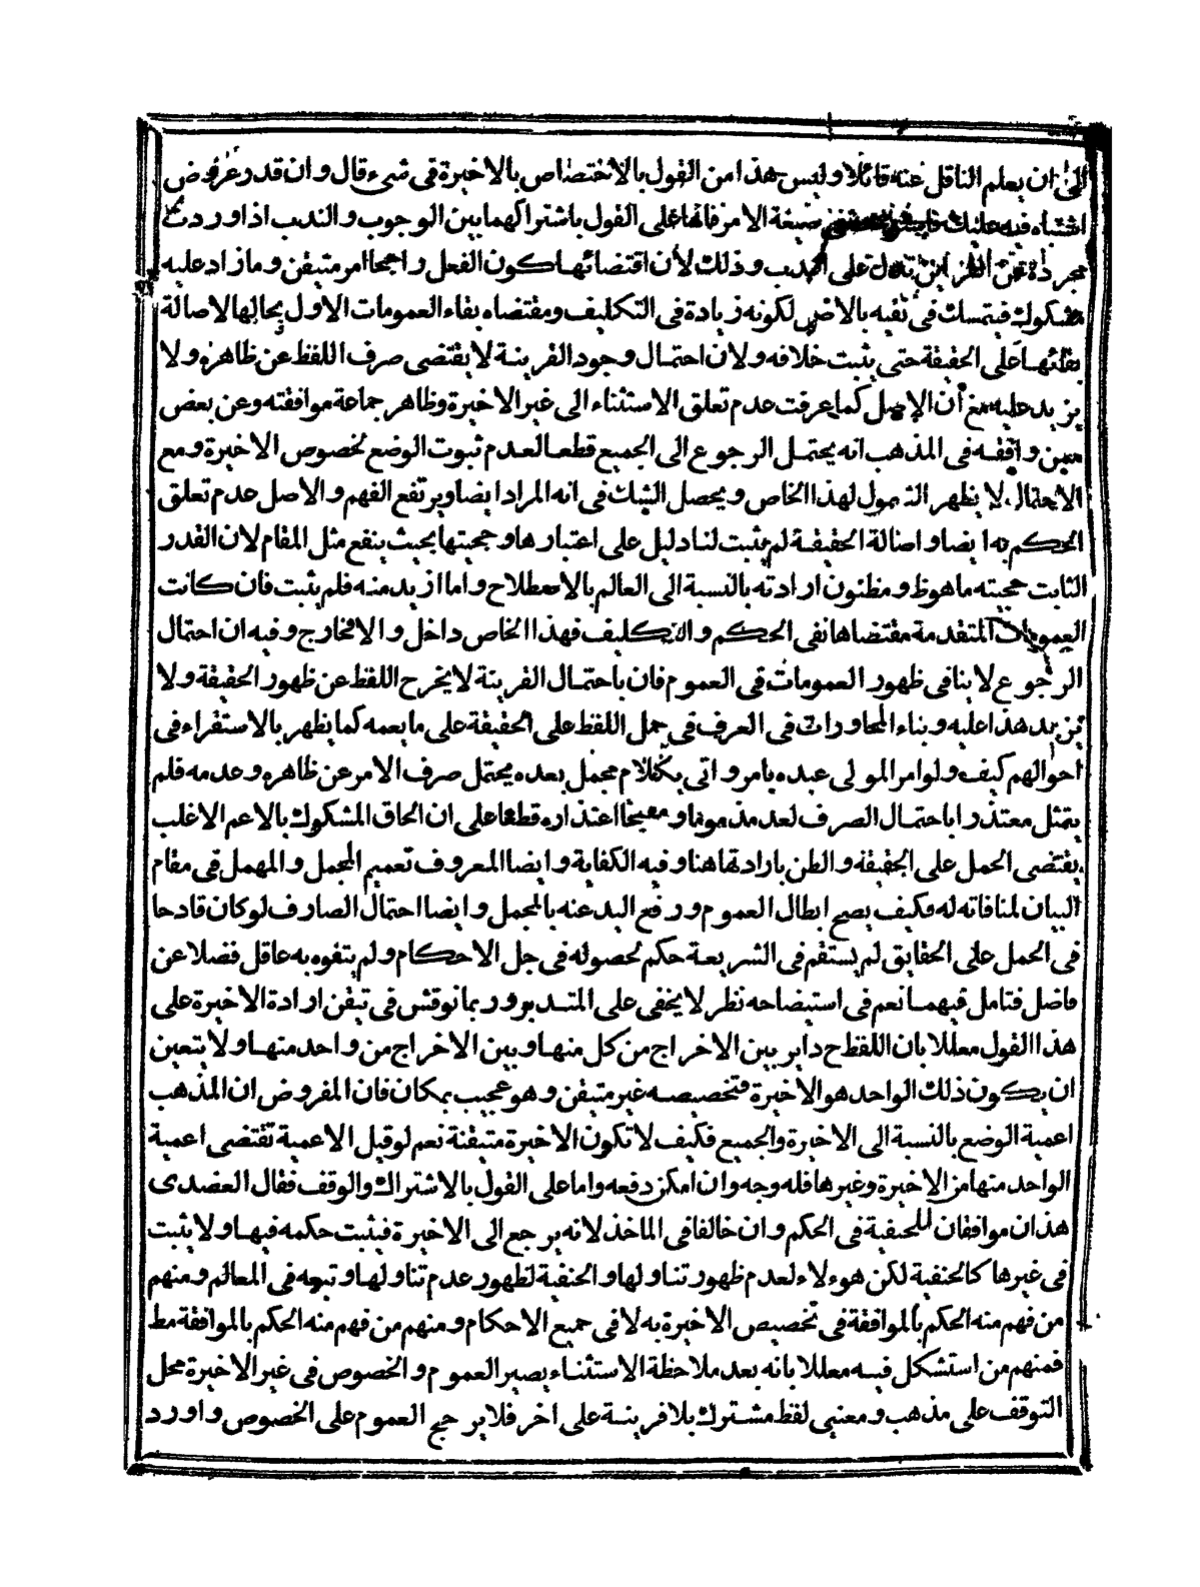 الى ان يعلم الناقل عنه قائلا وليس هذا من القول بالاختصاص بالاخيرة فى شىء قال وان قدر عروض
اشتباه فيه عليك صيغة الامر فانها على القول باشتراكهما بين الوجوب والندب اذا وردت
مجردة عن القراين تدل على الندب وذلك لأن اقتضائها كون الفعل راجحا امر متيقن وما زاد عليه
مشكوك فيتمسك فى نفيه بالاصل لكونه زيادة فى التكليف ومقتضاه بقاء العمومات الاول بحالها لاصالة
بقائها على الحقيقة حتى يثبت خلافه ولان احتمال وجود القرينة لا يقتضى صرف اللفظ عن ظاهره ولا
يزيد عليه مع أن الاصل كما عرفت عدم تعلق الاستثناء الى غير الاخيرة وظاهر جماعة موافقته وعن بعض
ممن وافقه فى المذهب انه يحتمل الرجوع الى الجميع قطعا لعدم ثبوت الوضع لخصوص الاخيرة ومع
الاحتمال لا يظهر الشمول لهذا الخاص ويحصل الشك فى انه المراد ايضا ويرتفع الفهم والاصل عدم تعلق
الحكم به ايضا واصالة الحقيقة لم يثبت لنا دليل على اعتبارها وحجيتها بحيث ينفع مثل المقام لان القدر
الثابت حجيته ما هو ظ ومظنون ارادته بالنسبة الى العالم بالاصطلاح واما ازيد منه فلم يثبت فان كانت
العمومات المتقدمة مقتضاها نفى الحكم والتكليف فهذا الخاص داخل والا فخارج وفيه ان احتمال
الرجوع لا ينافى ظهور العمومات فى العموم فان باحتمال القرينة لا يخرج اللفظ عن ظهور الحقيقة ولا
يزيد هذا عليه وبناء المحاورات فى العرف فى حمل اللفظ على الحقيقة على ما يعمه كما يظهر بالاستقراء فى
احوالهم كيف ولو امر المولى عبده بامر واتى بكلام مجمل بعده يحتمل صرف الامر عن ظاهره وعدمه فلم
يمتثل معتذرا باحتمال الصرف لعد مذموما و اعتذاره قطعا على ان الحاق المشكوك بالاعم الاغلب
يقتضى الحمل على الحقيقة والظن بارادتها هنا وفيه الكفاية وايضا المعروف تعميم المجمل والمهمل فى مقام
البيان لمنافاته له فكيف يصح ابطال العموم ورفع اليد عنه بالمجمل وايضا احتمال الصارف لو كان قادحا
فى الحمل على الحقايق لم يستقم فى الشريعة حكم لحصوله فى جل الاحكام ولم يتفوه به عاقل فضلا عن
فاضل فتامل فيهما نعم فى استيضاحه نظر لا يخفى على المتدبر وربما نوقش فى تيقن ارادة الاخيرة على
هذا القول معللا بان اللفظ ح داير بين الاخراج من كل منها وبين الاخراج من واحد منها ولا يتعين
ان يكون ذلك الواحد هو الاخيرة فتخصيصه غير متيقن وهو عجيب بمكان فان المفروض ان المذهب
اعمية الوضع بالنسبة الى الاخيرة والجميع فكيف لا تكون الاخيرة متيقنة نعم لو قيل الاعمية تقتضى اعمية
الواحد منها من الاخيرة وغيرها فله وجه وان امكن دفعه واما على القول بالاشتراك والوقف فقال العضدى
هذان موافقان للحنفية فى الحكم وان خالفا فى الماخذ لانه يرجع الى الاخيرة فيثبت حكمه فيها ولا يثبت
فى غيرها كالحنفية لكن هوءلاء لعدم ظهور تناولها والحنفية لظهور عدم تناولها وتبعه فى المعالم ومنهم
من فهم منه الحكم بالموافقة فى تخصيص الاخيرة به لا فى جميع الاحكام ومنهم من فهم منه الحكم بالموافقة مط
فمنهم من استشكل فيه معللا بانه بعد ملاحظة الاستثناء يصير العموم والخصوص فى غير الاخيرة محل
التوقف على مذهب ومعنيى لفظ مشترك بلا قرينة على اخر فلا يرجح العموم على الخصوص واورد